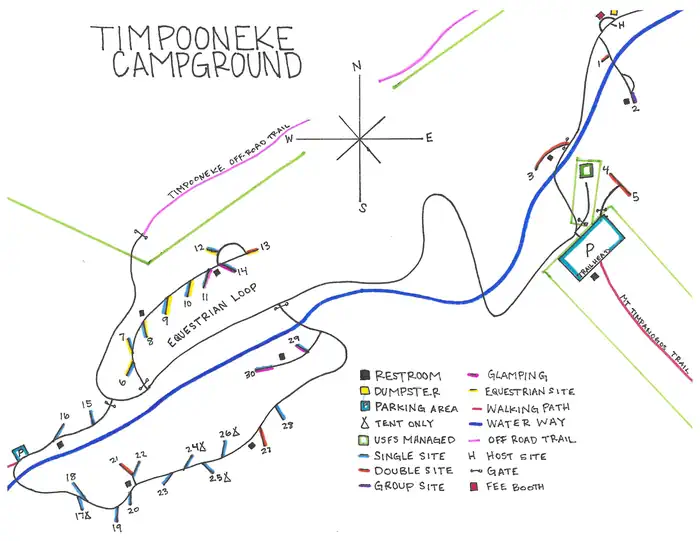 TIMPOONEKE
CAMPGROUND
N
W
E
S
TIMPOONEKE OFF-ROAD TRAIL
EQUESTRIAN LOOP
H
1
2
3
4
5
P
TRAILHEAD
MT TIMPANOGOS TRAIL
12
13
14
11
10
9
8
7
6
15
16
P
29
30
28
27
26
25
24
23
22
21
20
19
18
17
RESTROOM
DUMPSTER
P PARKING AREA
TENT ONLY
USFS MANAGED
SINGLE SITE
DOUBLE SITE
GROUP SITE
GLAMPING
EQUESTRIAN SITE
WALKING PATH
WATER WAY
OFF ROAD TRAIL
H HOST SITE
GATE
FEE BOOTH